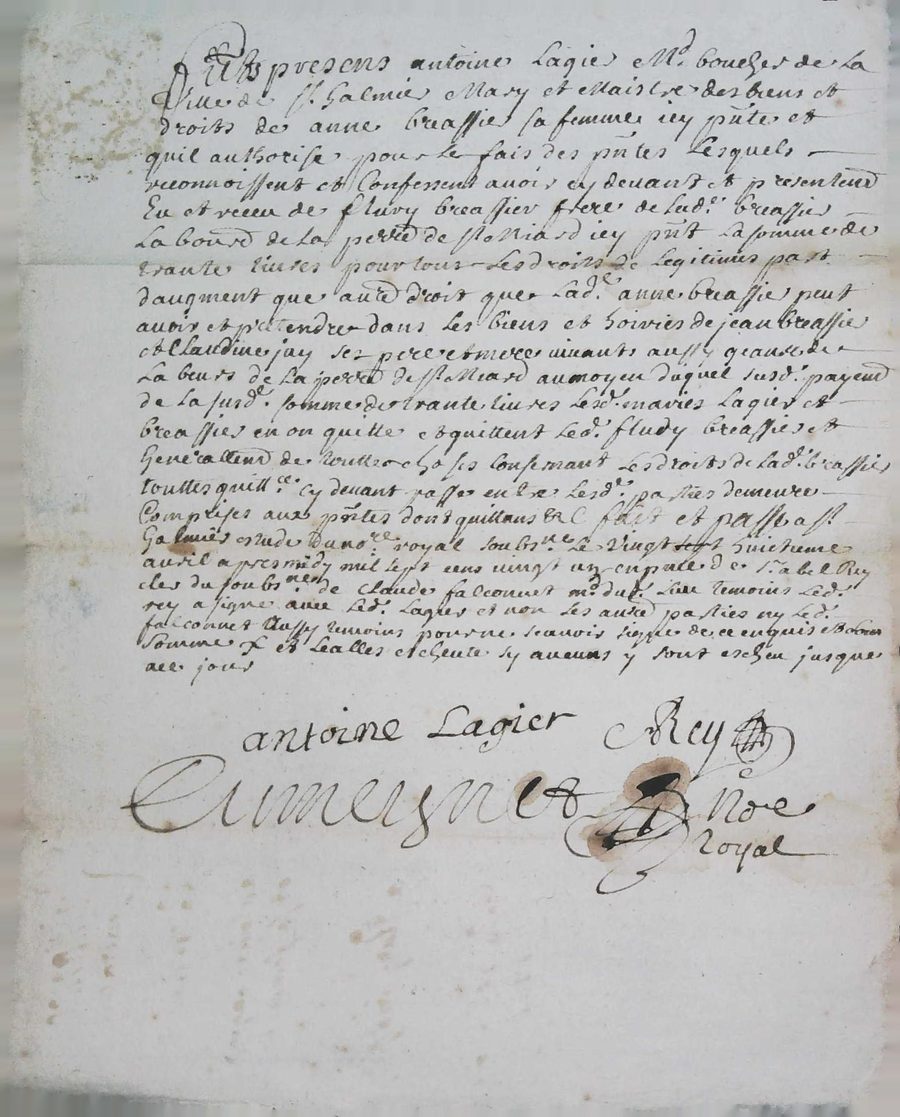 presens antoine Lagier Md. boucher de La
Ville de St. Galmier Mary et Maistre des biens et
droits de anne breassier sa femme icy pnte et
quil authorise pour le fais des pntes Lesquels
reconnoissent et Confessent avoir cy devant et presentemd
Eu et receu de fleury breassier frere de Lade. breassier
La bourd de La icy pnt La somme de
trante livres pour tous Les droits de Legitimes part
daugment que autd droit que Lade. anne breassie peut
avoir et pretendre dans Les biens et hoiries de jean breassie
et Claudine jay ses pere et mere vivants aussy de
La de au moyen duquel susd. payemd
de La susde. somme de trante livres Lesd. mariés Lagier et
breassier en on quitte et quittent Led. fludy breassier et
Generallemd de touttes choses Consernant Les droits de Lade. breassie
touttes cy devant passe entre Lesd. parties demeure
Comprises aux pntes dont quittans &c fait et passe a St.
Galmier estude du nore. royal soubsne. Le vingt huictieme
avril apres midy mil sept cens vingt un en pnce de Rey
clerc du soubsne de Claude falconnet md. dud. Lieu temoins Led.
rey a signe avec Led. Lagier et non Les autrd parties ny Led.
falconnet aussy temoins pour ne scavoir signe de ce enquis et
somme et sy aucuns y sont escheu jusque
a ce jour
antoine Lagier Rey
Nore
royal